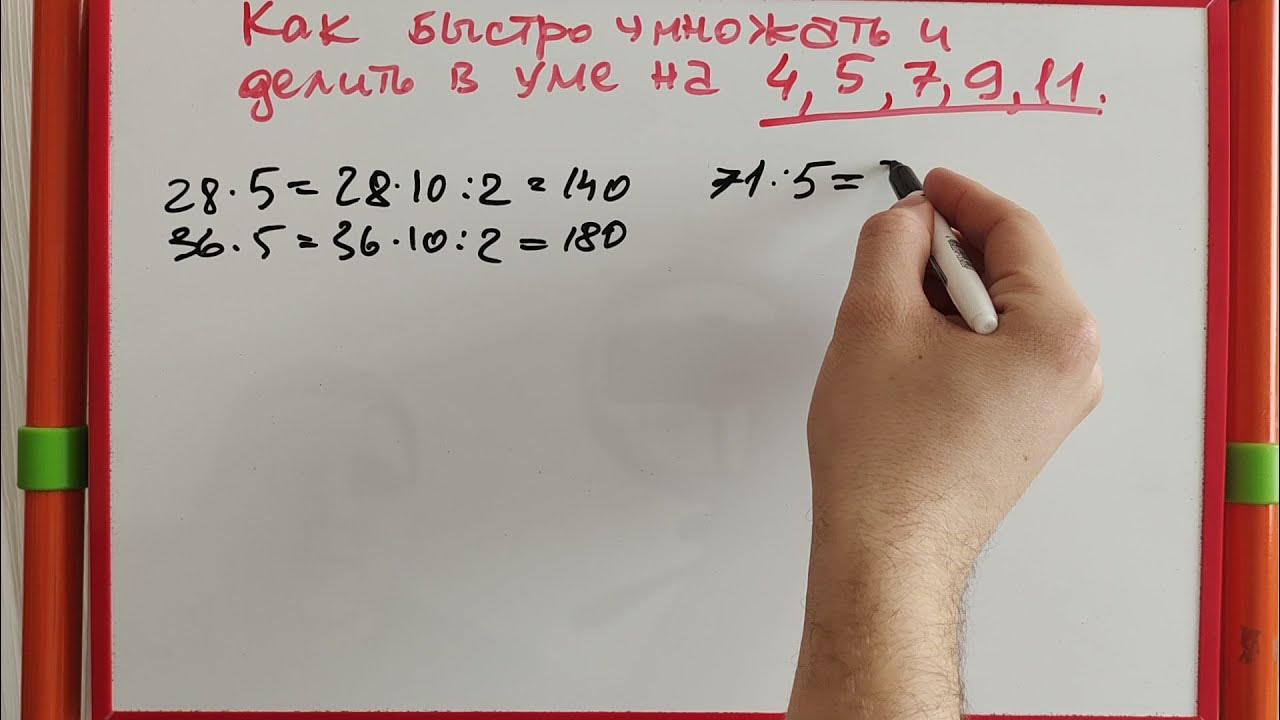 Как быстро умножать и
делить в уме на 4, 5, 7, 9, 11.
28·5 = 28·10:2 = 140
36·5 = 36·10:2 = 180
71:5=